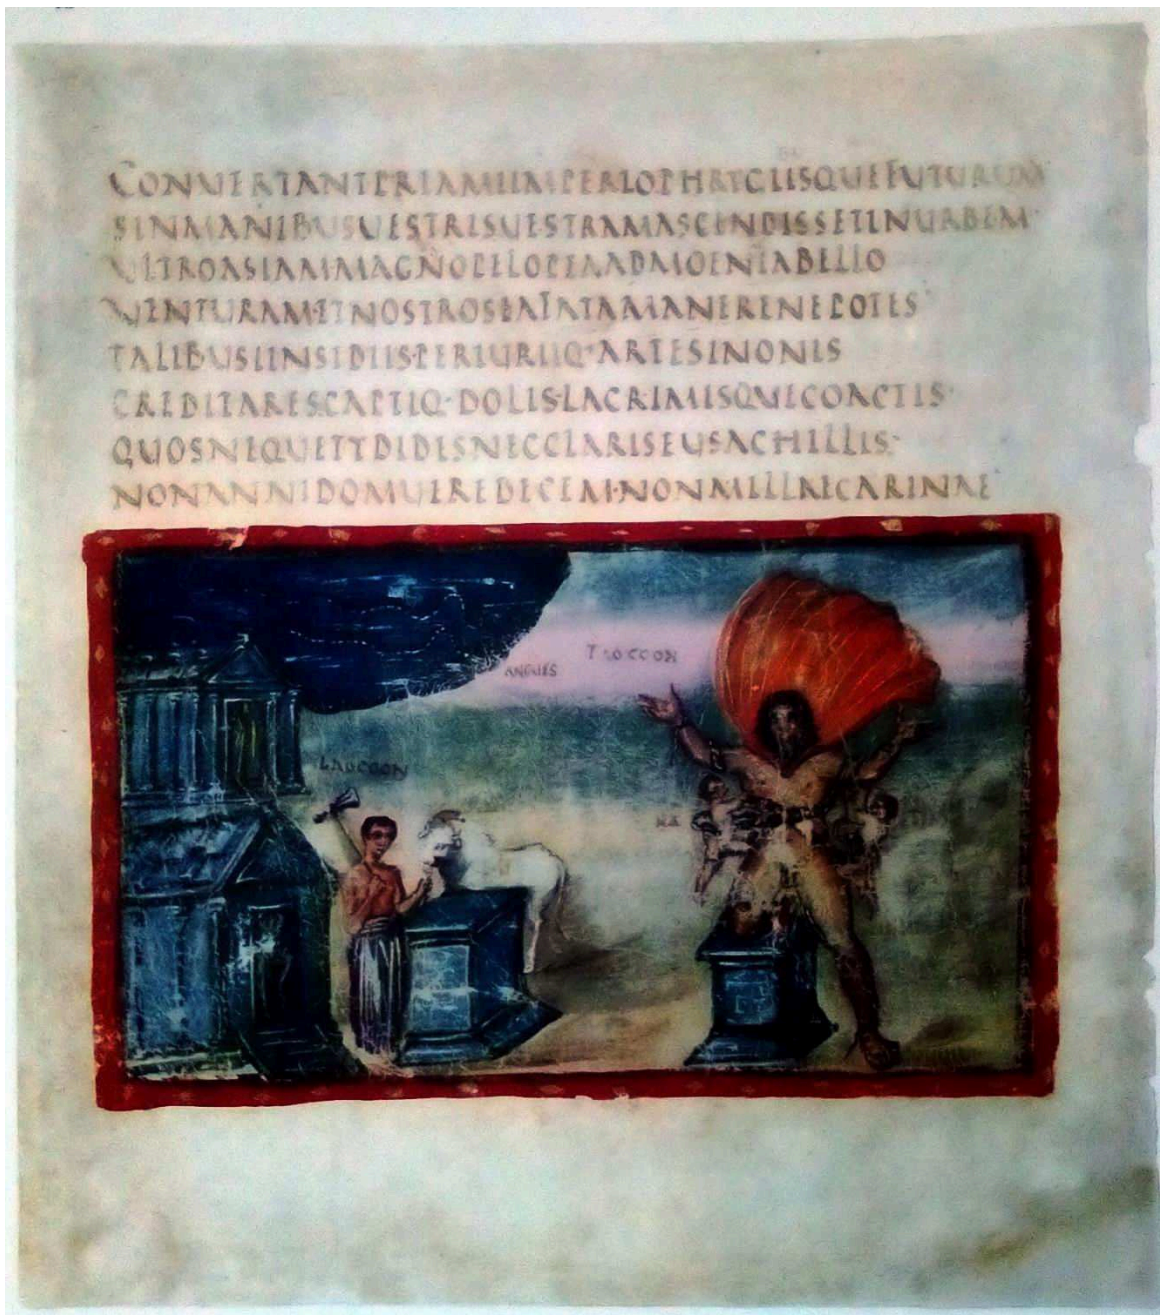 CONUERTANTPRIAMIIMPERIOPHRYGIISQUEFUTURUM
SINMANIBUSUESTRISUESTRAMASCENDISSETINURBEM·
ULTROASIAMMAGNOPELOPEAADMOENIABELLO
UENTURAMETNOSTROSEAFATAMANERENEPOTES
TALIBUSINSIDIISPERIURIIQ·ARTESINONIS
CREDITARESCAPTIQ·DOLISLACRIMISQUECOACTIS·
QUOSNEQUETYDIDESNECCLARISEUSACHILLIS·
NONANNIDOMUEREDECEM·NONMILLECARINAE
ANGUES
LAOCOON
NA